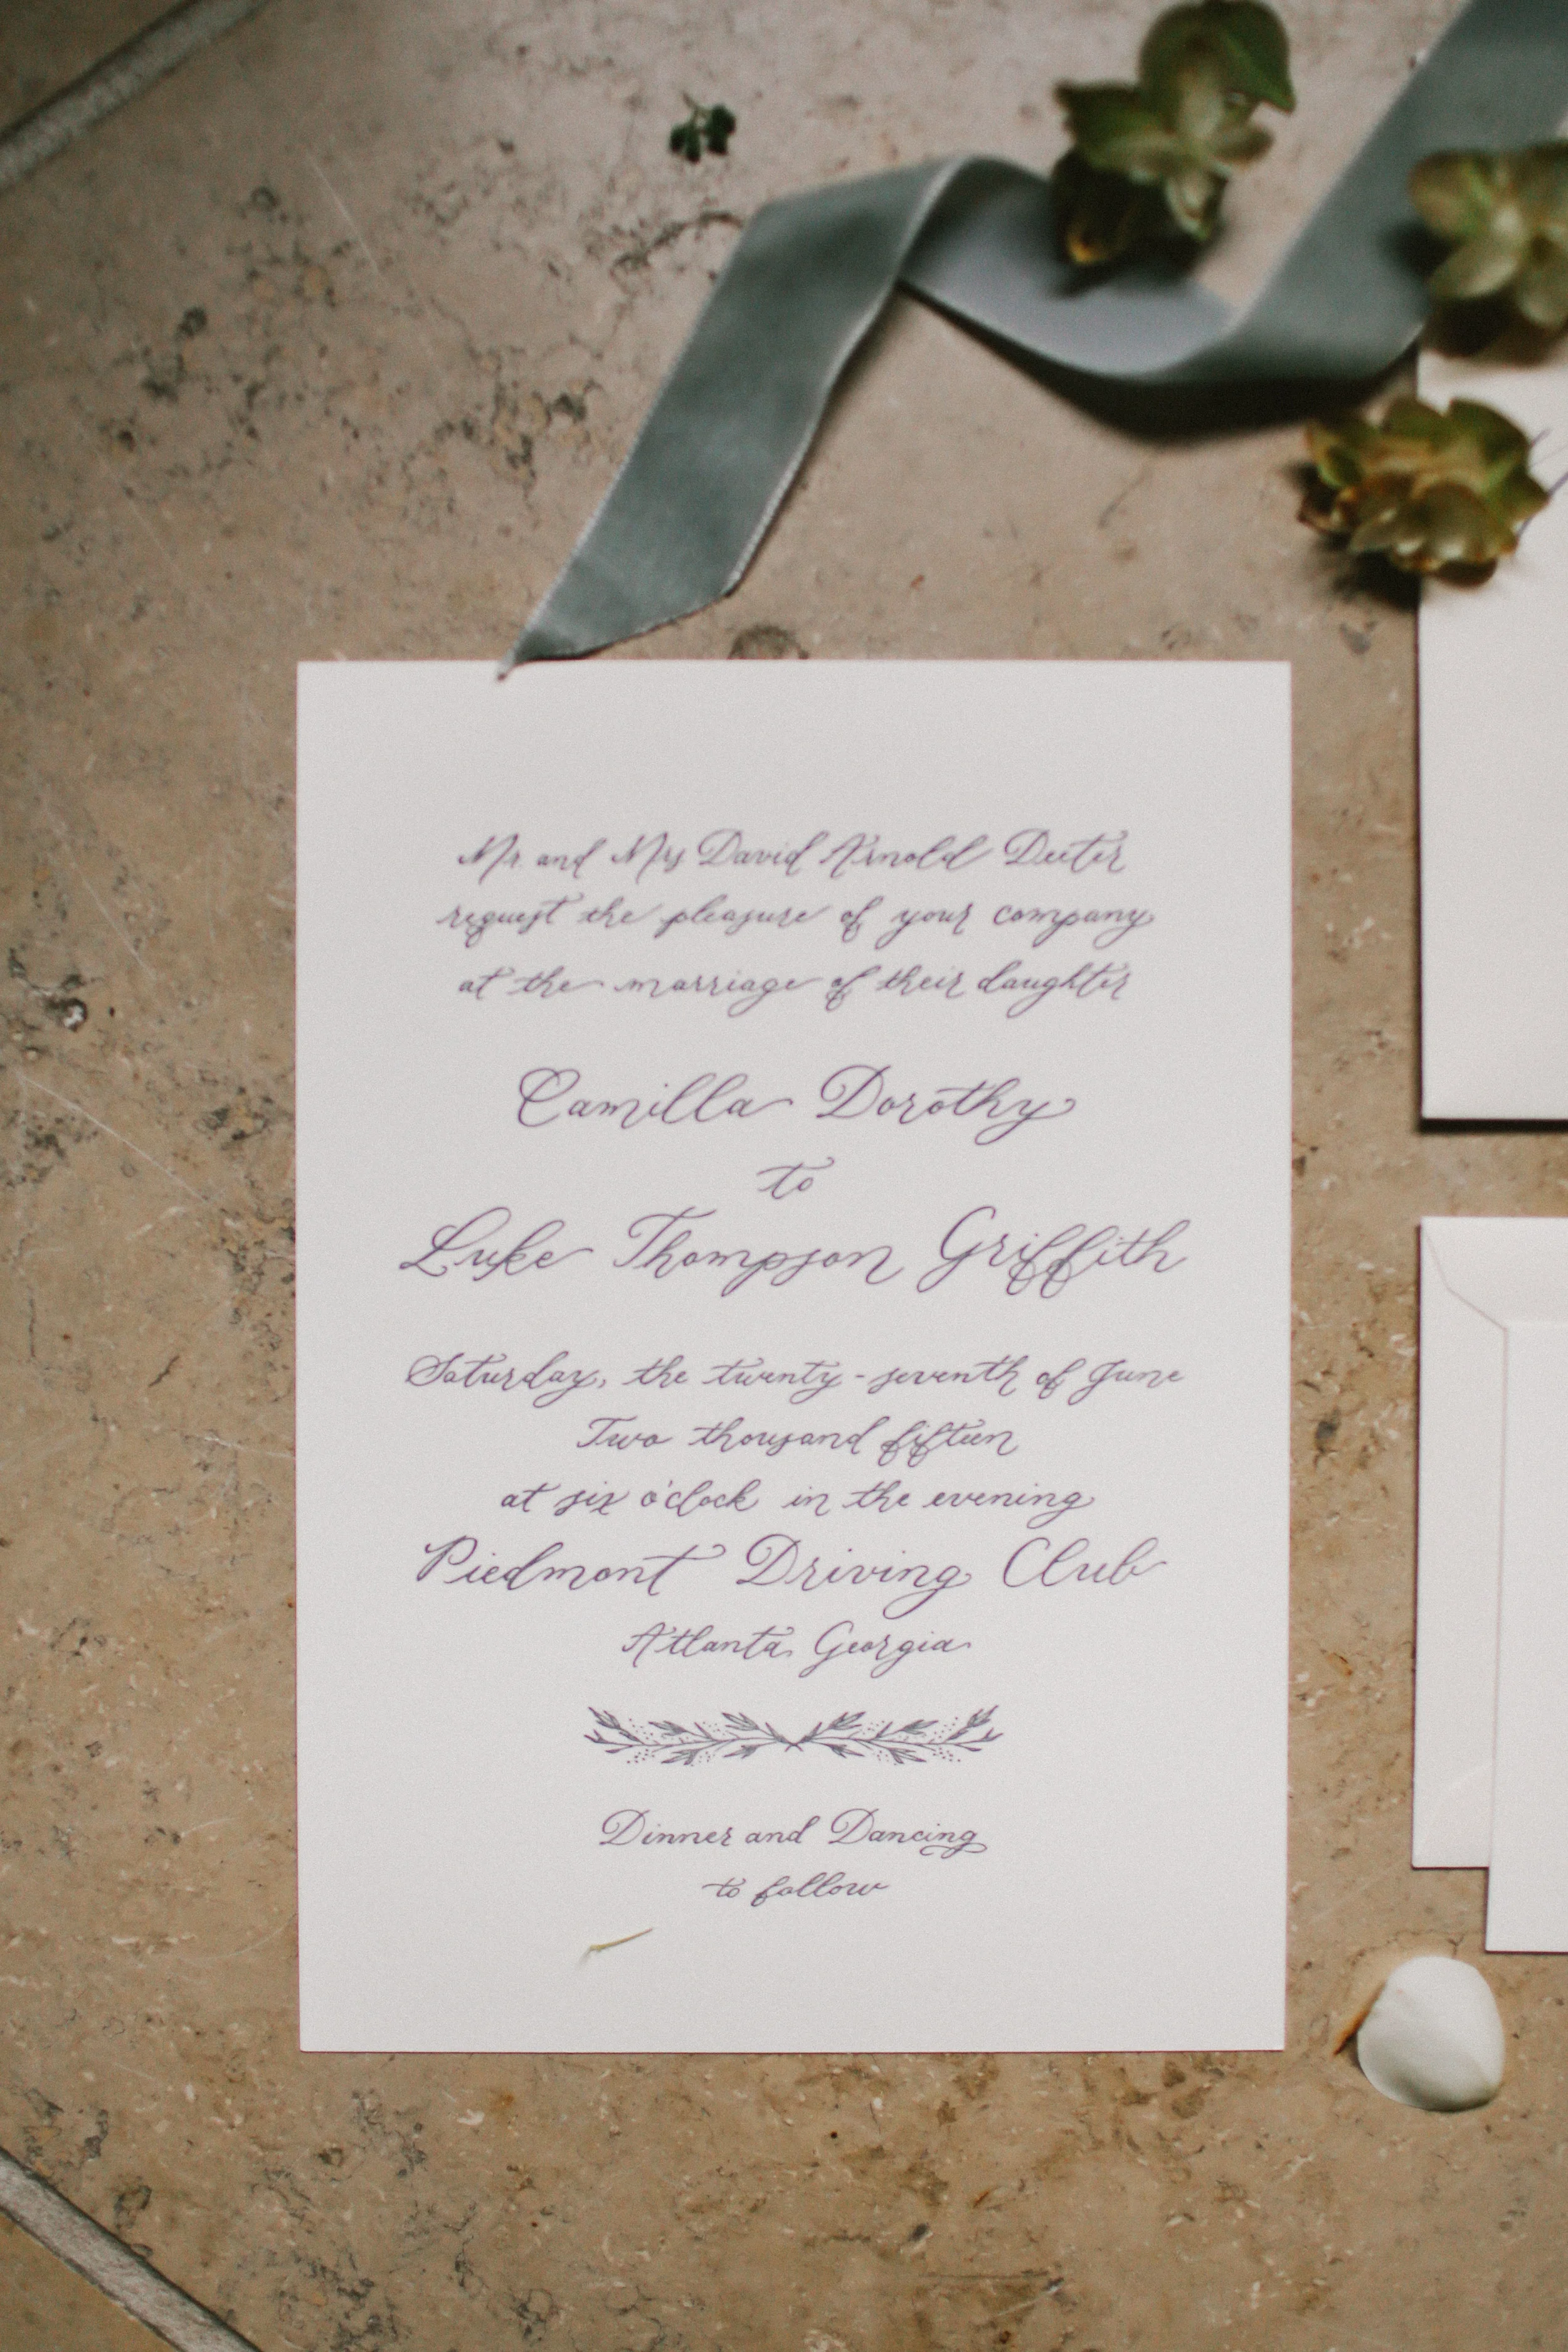 Mr. and Mrs David Arnold Deeter
request the pleasure of your company
at the marriage of their daughter
Camilla Dorothy
to
Luke Thompson Griffith
Saturday, the twenty-seventh of June
Two thousand fifteen
at six o'clock in the evening
Piedmont Driving Club
Atlanta, Georgia
Dinner and Dancing
to follow